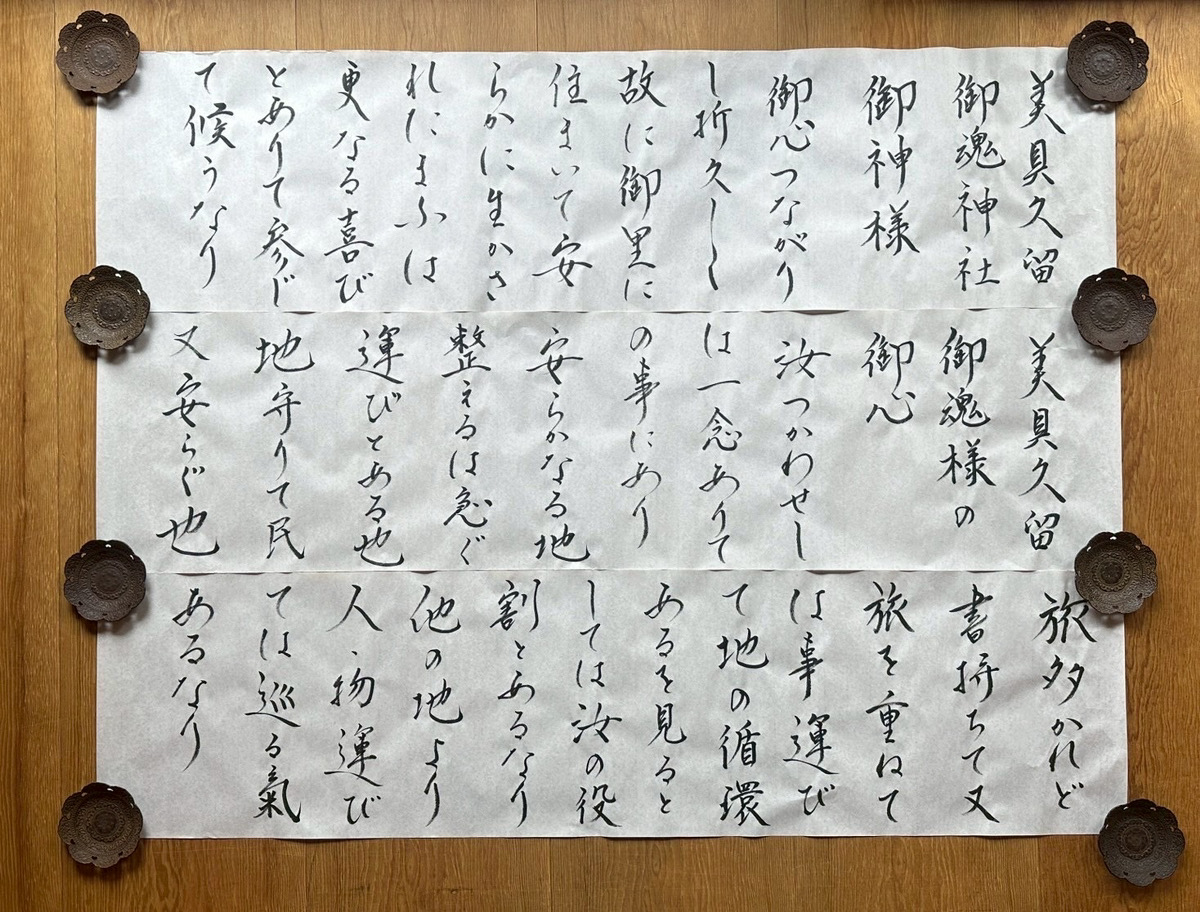 美具久留
御魂神社
御神様
御心つながり
し折久しく
故に御里に
住まいて安
らかに生かさ
れたまふは
更なる喜び
とありて参じ
て候うなり
美具久留
御魂様の
御心
汝つかわせし
は一念ありて
の事にあり
安らかなる地
整えるは急ぐ
運びとある也
地守りて民
又安らぐ也
旅多かれど
書持ちて又
旅を重ねて
は事運び
て地の循環
あるを見ると
しては汝の役
割とあるなり
他の地より
人、物運び
ては巡る氣
あるなり